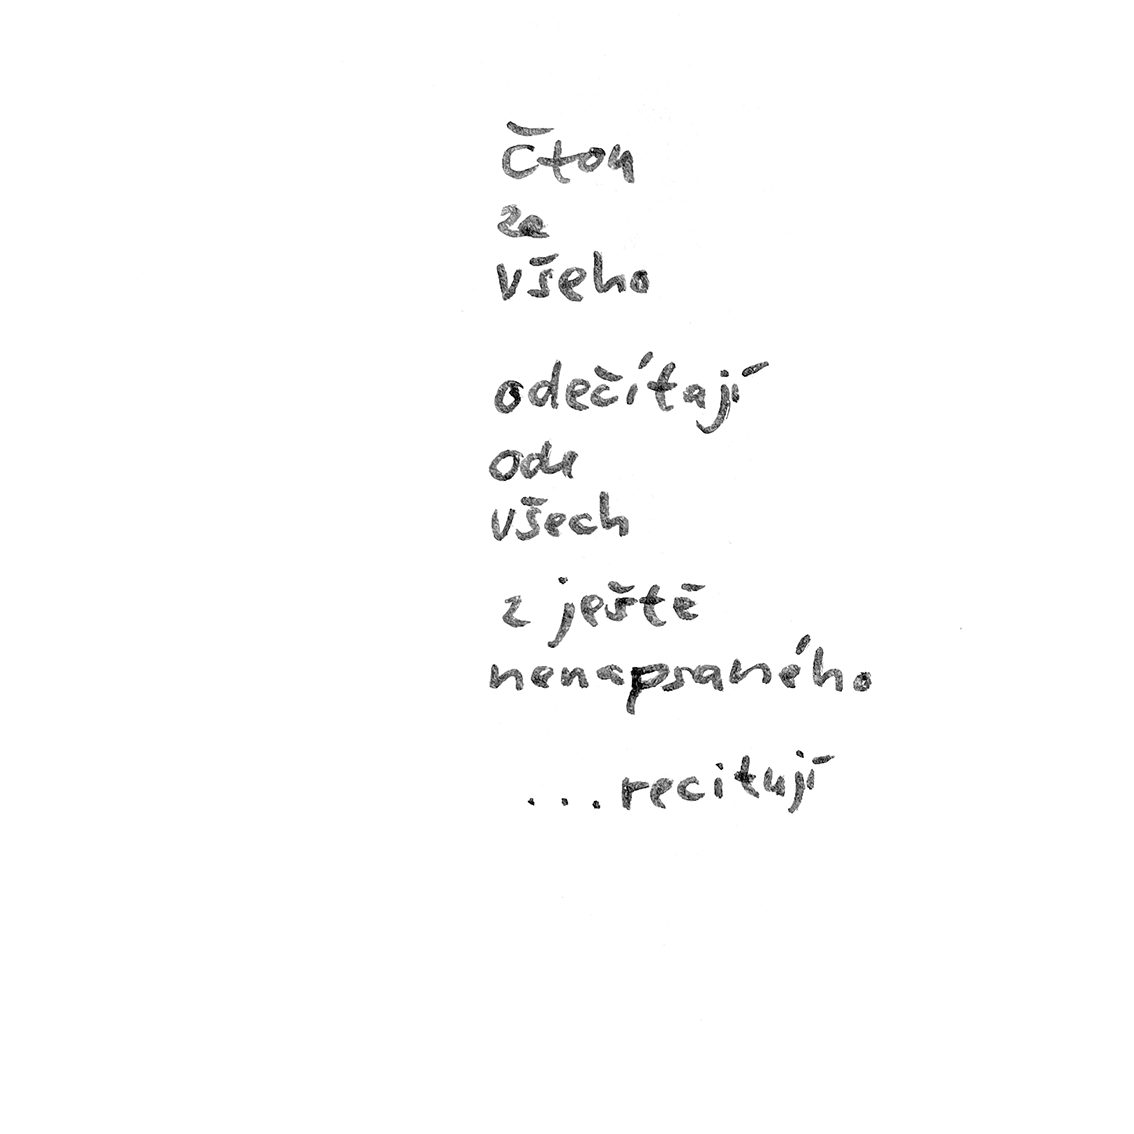 čtou
ze
všeho
odečítají
ode
všech
z ještě
nenapsaného
...recitují